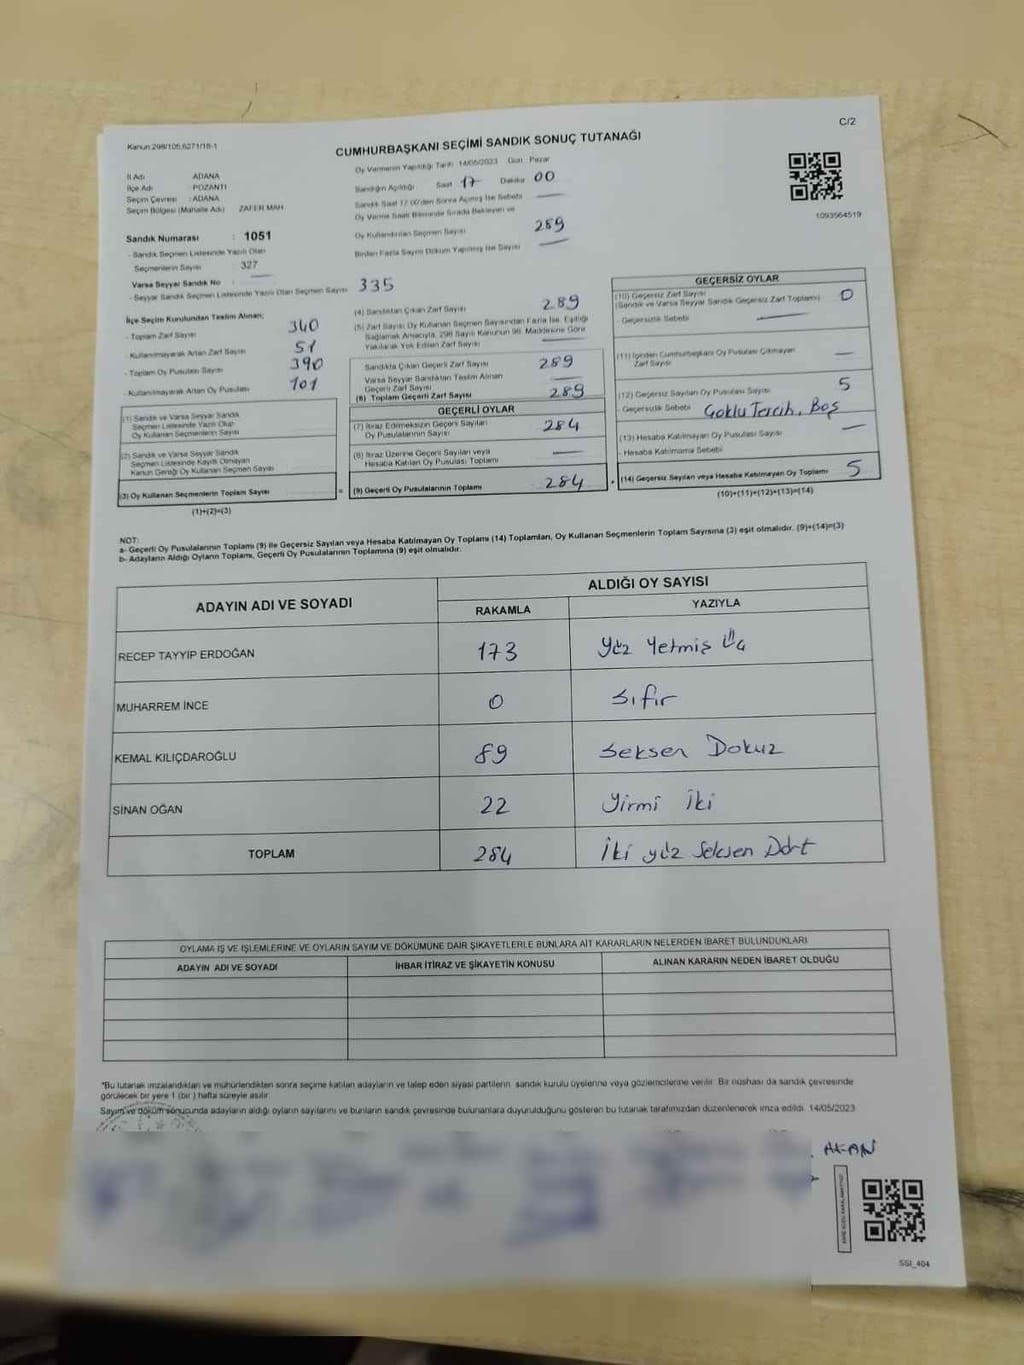 Kanun:298/105;6271/18-1
C/2
CUMHURBAŞKANI SEÇİMİ SANDIK SONUÇ TUTANAĞI
İl Adı ADANA
İlçe Adı POZANTI
Seçim Çevresi : ADANA
Seçim Bölgesi (Mahalle Adı) ZAFER MAH
Sandık Numarası : 1051
- Sandık Seçmen Listesinde Yazılı Olan
Seçmenlerin Sayısı : 327
Varsa Seyyar Sandık No
- Seyyar Sandık Seçmen Listesinde Yazılı Olan Seçmen Sayısı 335
Oy Vermenin Yapıldığı Tarih 14/05/2023 Gün Pazar
Sandığın Açıldığı Saat 17 Dakika 00
Sandık Saat 17:00'den Sonra Açılmış İse Sebebi
Oy Verme Saati Bitiminde Sırada Bekleyen ve
Oy Kullandırılan Seçmen Sayısı 289
Birden Fazla Sayım Döküm Yapılmış İse Sayısı
1093564519
İlçe Seçim Kurulundan Teslim Alınan;
- Toplam Zarf Sayısı 340
- Kullanılmayarak Artan Zarf Sayısı 51
- Toplam Oy Pusulası Sayısı 390
- Kullanılmayarak Artan Oy Pusulası 101
(1) Sandık ve Varsa Seyyar Sandık
Seçmen Listesinde Yazılı Olup
Oy Kullanan Seçmenlerin Sayısı
(2) Sandık ve Varsa Seyyar Sandık
Seçmen Listesinde Kayıtlı Olmayan
Kanun Gereği Oy Kullanan Seçmen Sayısı
(3) Oy Kullanan Seçmenlerin Toplam Sayısı
(1)+(2)=(3)
(4) Sandıktan Çıkan Zarf Sayısı 289
(5) Zarf Sayısı Oy Kullanan Seçmen Sayısından Fazla İse, Eşitliği
Sağlamak Amacıyla, 298 Sayılı Kanunun 98. Maddesine Göre
Yakılarak Yok Edilen Zarf Sayısı
Sandıkta Çıkan Geçerli Zarf Sayısı 289
Varsa Seyyar Sandıktan Teslim Alınan
Geçerli Zarf Sayısı
(6) Toplam Geçerli Zarf Sayısı 289
GEÇERLİ OYLAR
(7) İtiraz Edilmeksizin Geçerli Sayılan
Oy Pusulalarının Sayısı 284
(8) İtiraz Üzerine Geçerli Sayılan veya
Hesaba Katılan Oy Pusulası Toplamı
= (9) Geçerli Oy Pusulalarının Toplamı 284
GEÇERSİZ OYLAR
(10) Geçersiz Zarf Sayısı
(Sandık ve Varsa Seyyar Sandık Geçersiz Zarf Toplamı) 0
- Geçersizlik Sebebi
(11) İçinden Cumhurbaşkanı Oy Pusulası Çıkmayan
Zarf Sayısı
(12) Geçersiz Sayılan Oy Pusulası Sayısı 5
- Geçersizlik Sebebi Çoklu Tercih, Boş
(13) Hesaba Katılmayan Oy Pusulası Sayısı
- Hesaba Katılmama Sebebi
+ (14) Geçersiz Sayılan veya Hesaba Katılmayan Oy Toplamı 5
(10)+(11)+(12)+(13)=(14)
NOT:
a- Geçerli Oy Pusulalarının Toplamı (9) ile Geçersiz Sayılan veya Hesaba Katılmayan Oy Toplamı (14) Toplamları, Oy Kullanan Seçmenlerin Toplam Sayısına (3) eşit olmalıdır. (9)+(14)=(3)
b- Adayların Aldığı Oyların Toplamı, Geçerli Oy Pusulalarının Toplamına (9) eşit olmalıdır.
ADAYIN ADI VE SOYADI
ALDIĞI OY SAYISI
RAKAMLA YAZIYLA
RECEP TAYYIP ERDOĞAN 173 Yüz Yetmiş Üç
MUHARREM İNCE 0 Sıfır
KEMAL KILIÇDAROĞLU 89 Seksen Dokuz
SİNAN OĞAN 22 Yirmi İki
TOPLAM 284 İki yüz Seksen Dört
OYLAMA İŞ VE İŞLEMLERİNE VE OYLARIN SAYIM VE DÖKÜMÜNE DAİR ŞİKAYETLERLE BUNLARA AİT KARARLARIN NELERDEN İBARET BULUNDUKLARI
ADAYIN ADI VE SOYADI İHBAR İTİRAZ VE ŞİKAYETİN KONUSU ALINAN KARARIN NEDEN İBARET OLDUĞU
*Bu tutanak imzalandıktan ve mühürlendikten sonra seçime katılan adayların ve talep eden siyasi partilerin sandık kurulu üyelerine veya gözlemcilerine verilir. Bir nüshası da sandık çevresinde
görülecek bir yere 1 (bir) hafta süreyle asılır.
Sayım ve döküm sonucunda adayların aldığı oyların sayılarını ve bunların sandık çevresinde bulunanlara duyurulduğunu gösteren bu tutanak tarafımızdan düzenlenerek imza edildi. 14/05/2023
SSI_404